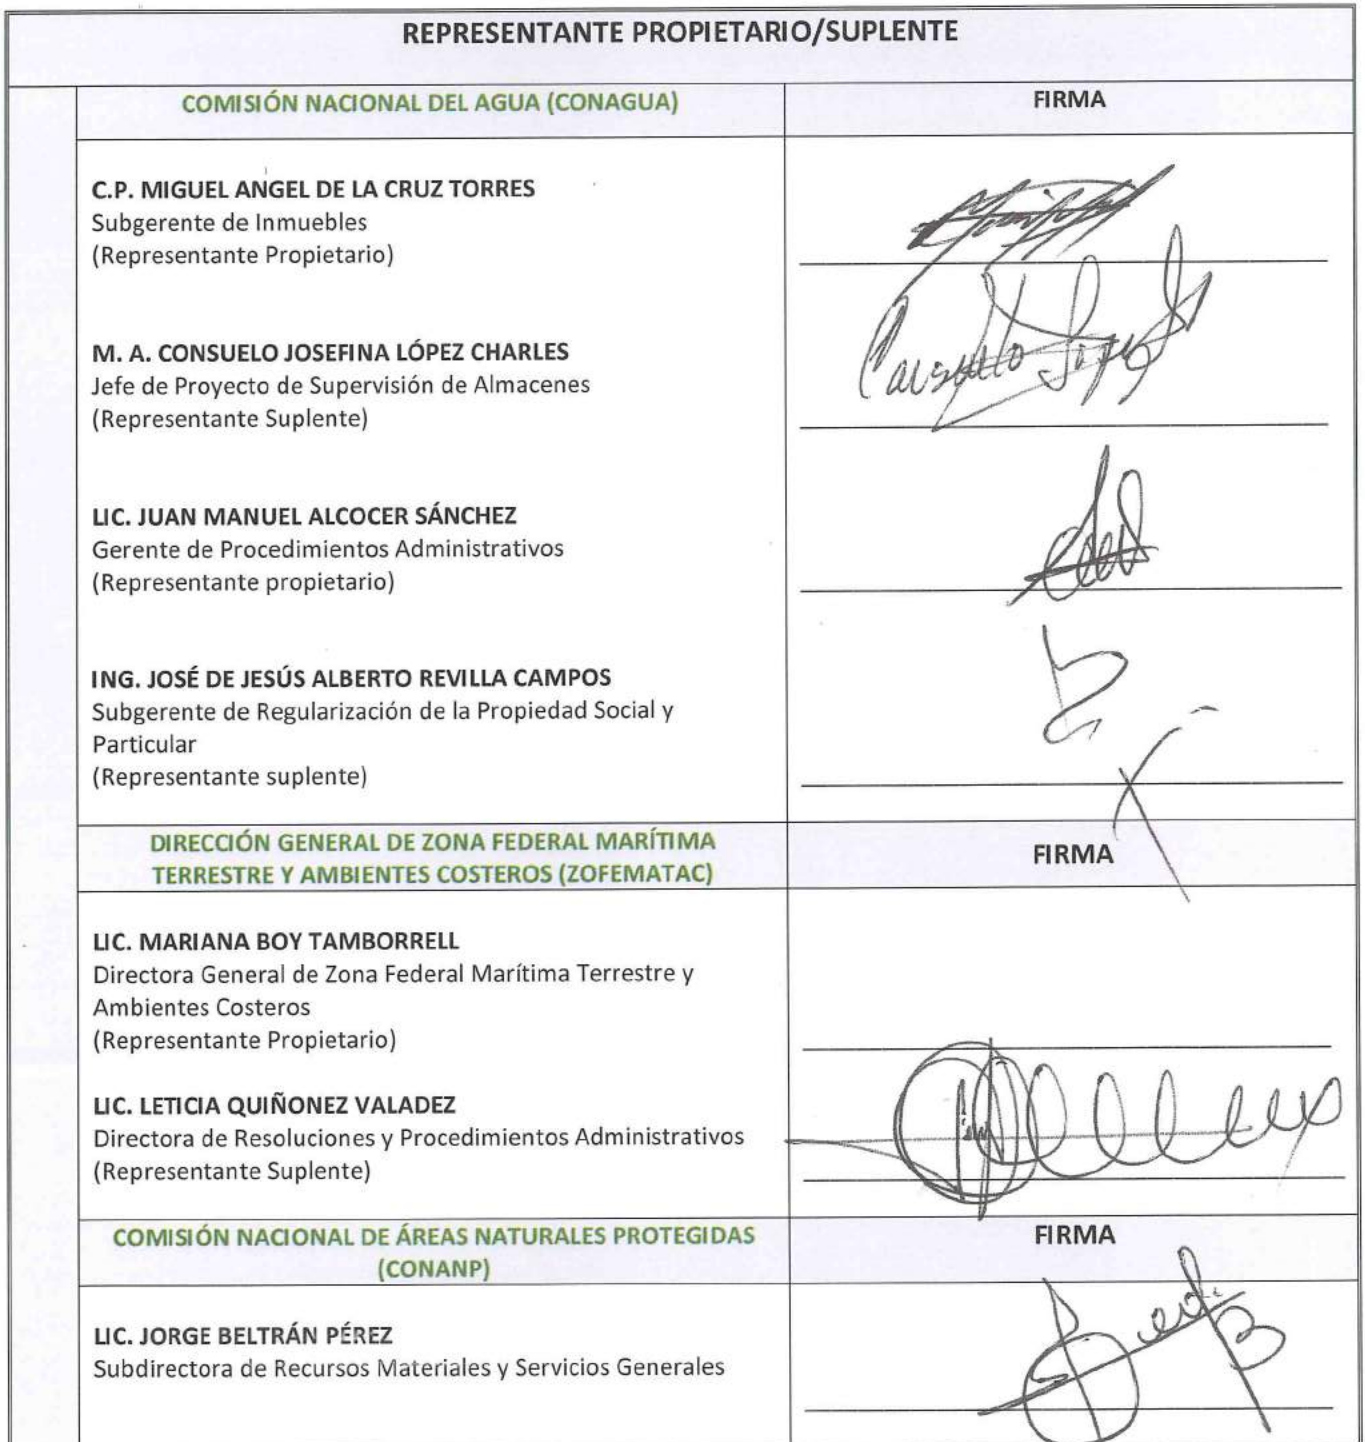 REPRESENTANTE PROPIETARIO/SUPLENTE
COMISIÓN NACIONAL DEL AGUA (CONAGUA)
FIRMA
C.P. MIGUEL ANGEL DE LA CRUZ TORRES
Subgerente de Inmuebles
(Representante Propietario)
M. A. CONSUELO JOSEFINA LÓPEZ CHARLES
Jefe de Proyecto de Supervisión de Almacenes
(Representante Suplente)
Consuelo López
LIC. JUAN MANUEL ALCOCER SÁNCHEZ
Gerente de Procedimientos Administrativos
(Representante propietario)
ING. JOSÉ DE JESÚS ALBERTO REVILLA CAMPOS
Subgerente de Regularización de la Propiedad Social y
Particular
(Representante suplente)
DIRECCIÓN GENERAL DE ZONA FEDERAL MARÍTIMA
TERRESTRE Y AMBIENTES COSTEROS (ZOFEMATAC)
FIRMA
LIC. MARIANA BOY TAMBORRELL
Directora General de Zona Federal Marítima Terrestre y
Ambientes Costeros
(Representante Propietario)
LIC. LETICIA QUIÑONEZ VALADEZ
Directora de Resoluciones y Procedimientos Administrativos
(Representante Suplente)
COMISIÓN NACIONAL DE ÁREAS NATURALES PROTEGIDAS
(CONANP)
FIRMA
LIC. JORGE BELTRÁN PÉREZ
Subdirectora de Recursos Materiales y Servicios Generales